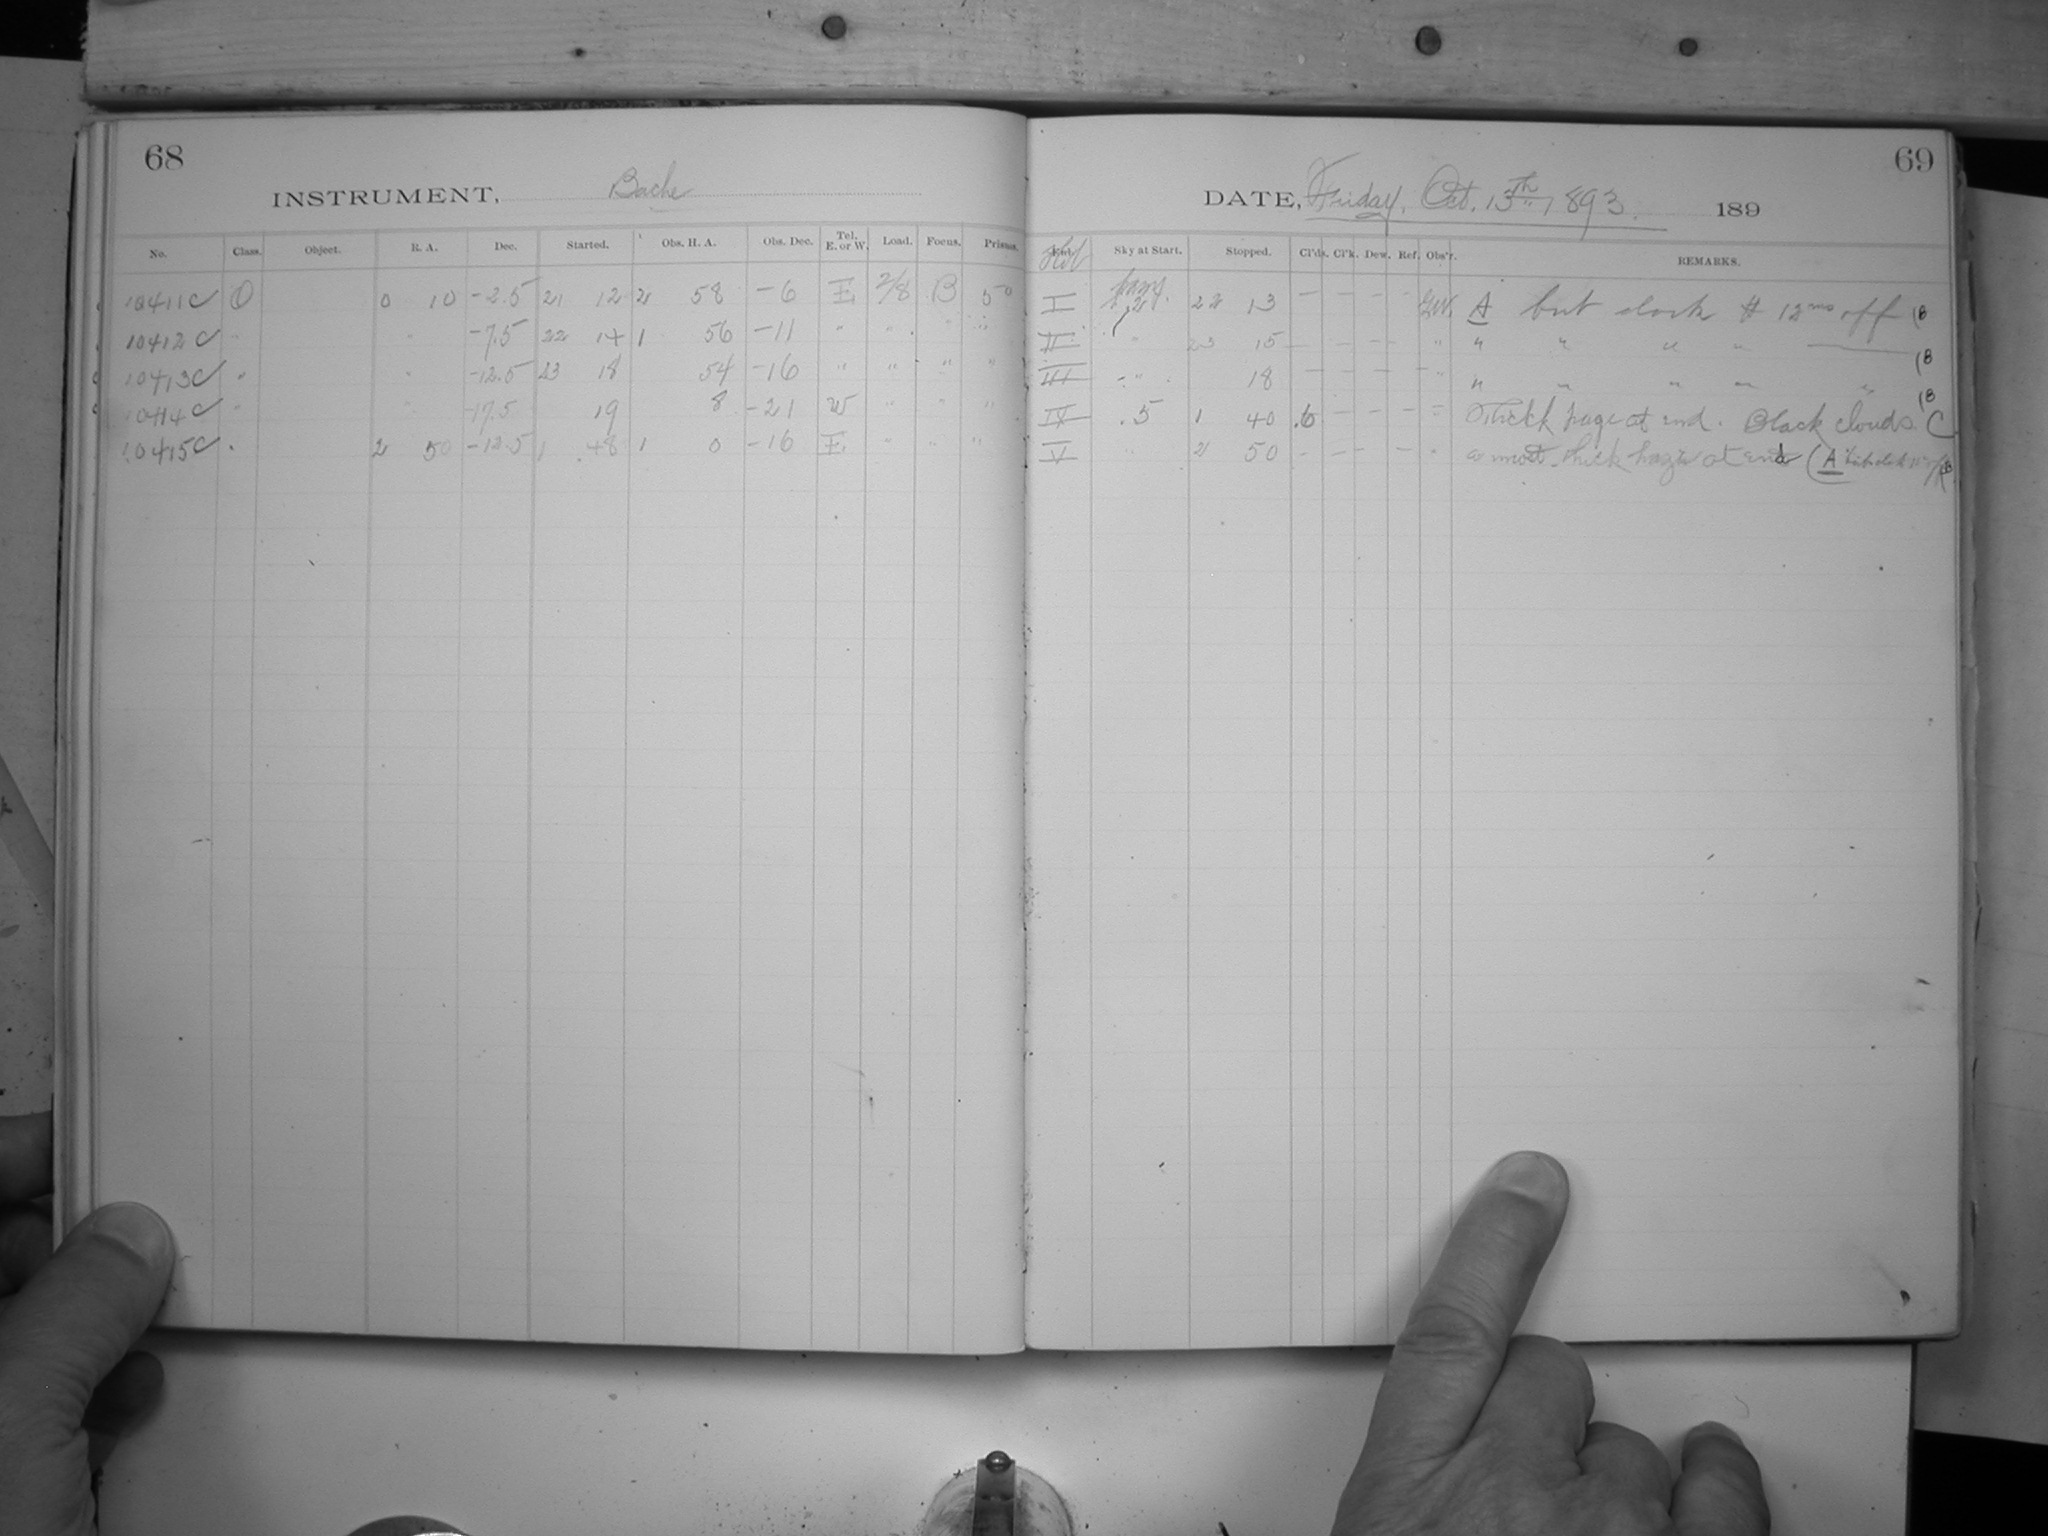 68
INSTRUMENT, Bache
No. Class. Object. R. A. Dec. Started. Obs. H. A. Obs. Dec. Tel. E. or W. Load. Focus. Prisms.
10411C O 0 10 -2.5 21 12 2 58 -6 E 2/8 B 50
10412C " " -7.5 22 14 1 56 -11 " " " "
10413C " " -12.5 23 18 54 -16 " " " "
10414C " " -17.5 19 8 -21 W " " "
10415C " 2 50 -12.5 1 48 1 0 -16 E " " "
69
DATE, Friday, Oct. 13th 1893. 189
Sky at Start. Stopped. Cl'ds. Cl'k. Dew. Ref. Obs'r. REMARKS.
I hazy. 22 13 — — — — A but clock 12ms off (B
II " 23 15 — — — — " " " " " (B
III " 18 — — — — " " " " " " (B
IV .5 1 40 .6 — — — " Thick haze at end. Black clouds. C
V " 2 50 — — — — " almost thick haze at end (A but clock off